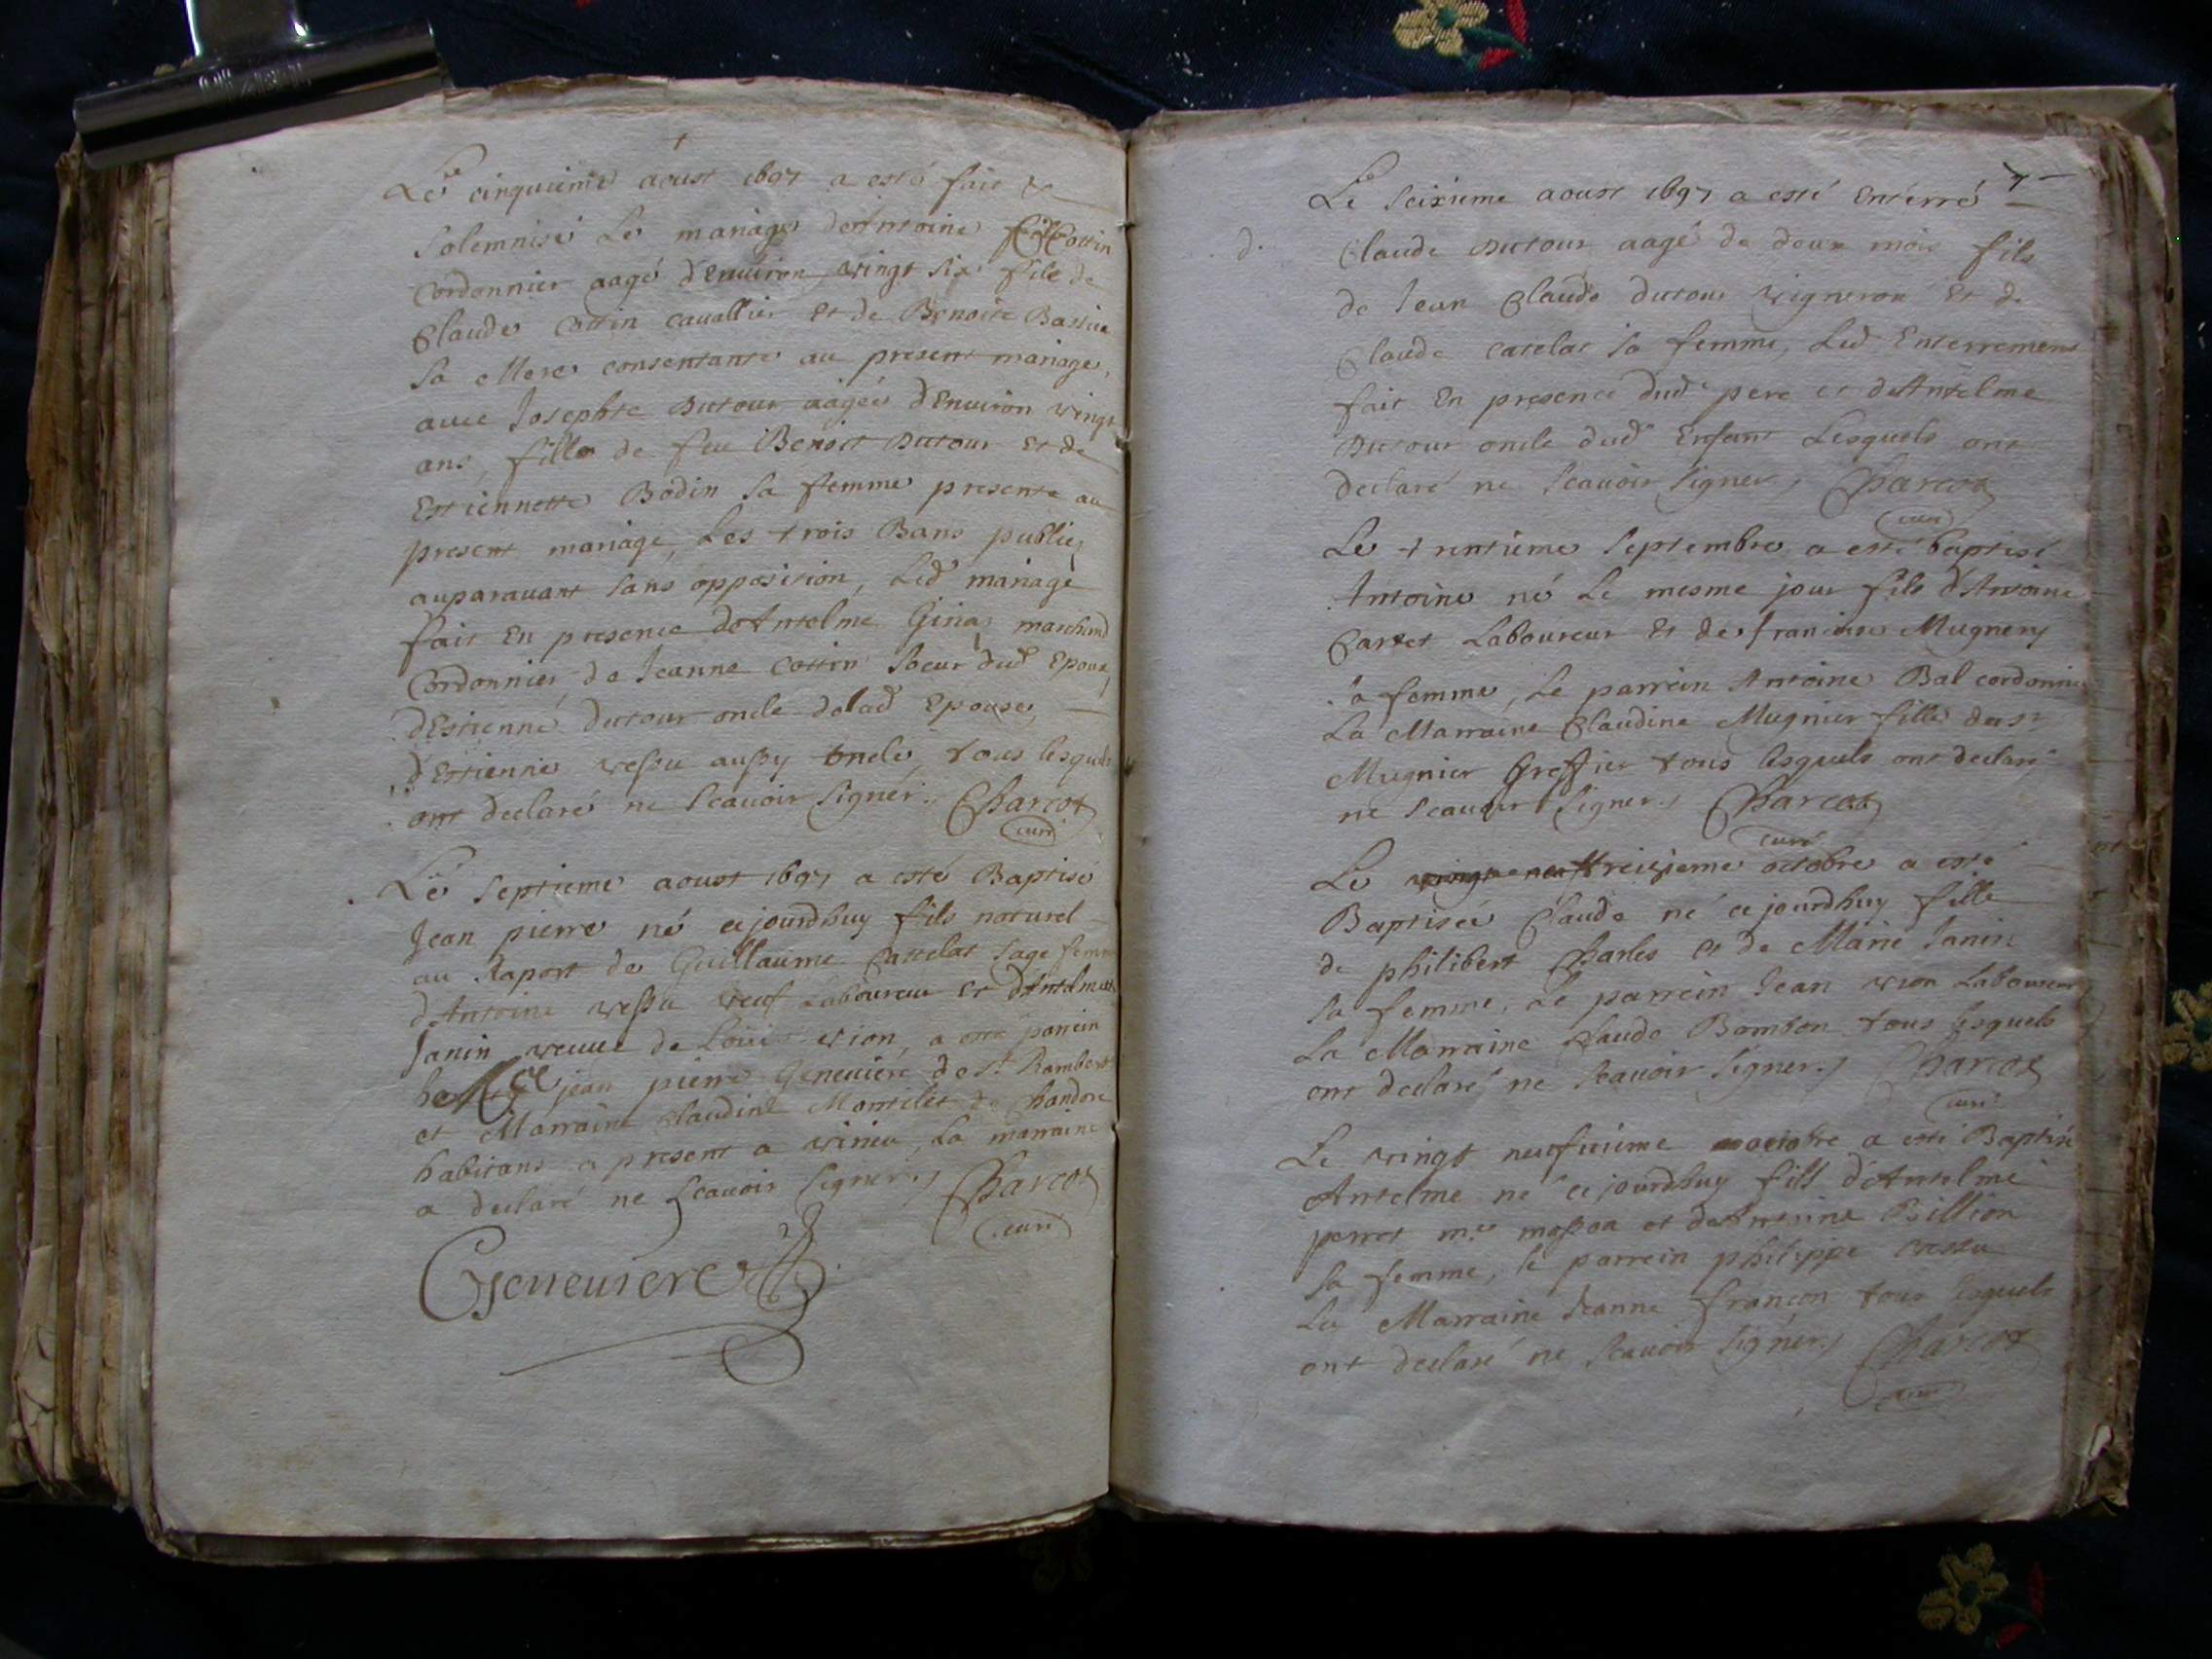 Le cinquieme aoust 1697 a esté fait et
Solemnisé Le mariage d'Antoine Cottin
Cordonnier aagé d'Environ vingt six fils de
Claude Cottin cavallier Et de Benoite
Sa Mere consentante au present mariage,
avec Josephte Dutour aagée d'Environ vingt
ans, fille de feu Benoit Dutour Et de
Estiennette Bodin Sa femme presente au
present mariage, Les trois Bans publiez
auparavant Sans opposition, Led mariage
fait En presence d'Antelme Ginaz marchand
Cordonnier de Jeanne Cottin Soeur dud Epoux
d'Estienne dutour oncle delad Epouse,
d'Estienne vessu aussy oncle, tous lesquels
ont declaré ne Scavoir Signer. Charcot
curé
Le Septieme aoust 1697 a esté Baptisé
Jean pierre né cejourdhuy fils naturel
au Raport de Guillaume Cattelat Sage femme
d'Antoine vessu veuf Laboureur et d'Antelmette
Janin veuve de Loüis vion, a eut parrein
jean pierre Geneviere de St Rambert
et Marraine Claudine Montilet de Chandore
habitans a present a virieu, La marraine
a declaré ne Scavoir Signer. Charcot
curé
Geneviere
7
Le Seixieme aoust 1697 a esté Enterré
d.
Claude Dutour aagé de deux mois fils
de Jean Claude dutour vigneron Et de
Claude catelat Sa femme, Led Enterrement
fait En presence dud pere et d'Antelme
Dutour oncle dud Enfant Lesquels ont
declaré ne Scavoir Signer, Charcot
curé
Le trentieme Septembre a esté baptisé
Antoine né Le mesme jour fils d'Antoine
Laboureur Et de francoise Mugnery
Sa femme, Le parrein Antoine Bal cordonnier
La Marraine Claudine Mugnier fille du Sr
Mugnier Greffier tous lesquels ont declaré
ne Scavoir Signer. Charcot
curé
Le treizieme octobre a esté
Baptisée Claude né cejourdhuy fille
de philibert Charles et de Marie Janin
Sa femme, Le parrein Jean vion Laboureur
La Marraine Claude Bombon tous lesquels
ont declaré ne Scavoir Signer. Charcot
curé
Le vingt neufvieme octobre a esté Baptisé
Antelme né cejourdhuy fils d'Antelme
perret me masson et d'Antoinne Billion
Sa femme, le parrein philippe vessu
La Marraine Jeanne françon tous lesquels
ont declaré ne Scavoir Signer. Charcot
curé